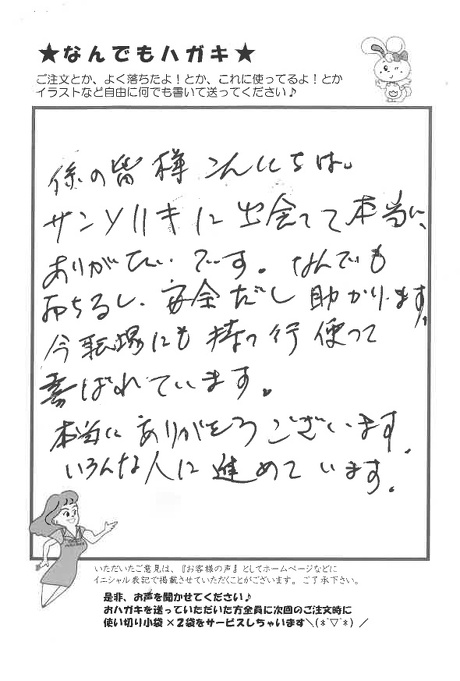 ★なんでもハガキ★
ご注文とか、よく落ちたよ！とか、これに使ってるよ！とか
イラストなど自由に何でも書いて送ってください♪
係の皆様 こんにちは。
サンソリキに出会てて本当に、
ありがたいです。なんでも
落ちるし、安全だし助かります。
今転場にも持って行使って
喜ばれています。
本当にありがとうございます。
いろんな人に進めています。
いただいたご意見は、『お客様の声』としてホームページなどに
イニシャル表記で掲載させていただくことがございます。ご了承下さい。
是非、お声を聞かせてください♪
おハガキを送っていただいた方全員に次回のご注文時に
使い切り小袋×2袋をサービスしちゃいます＼(*´▽`*)／